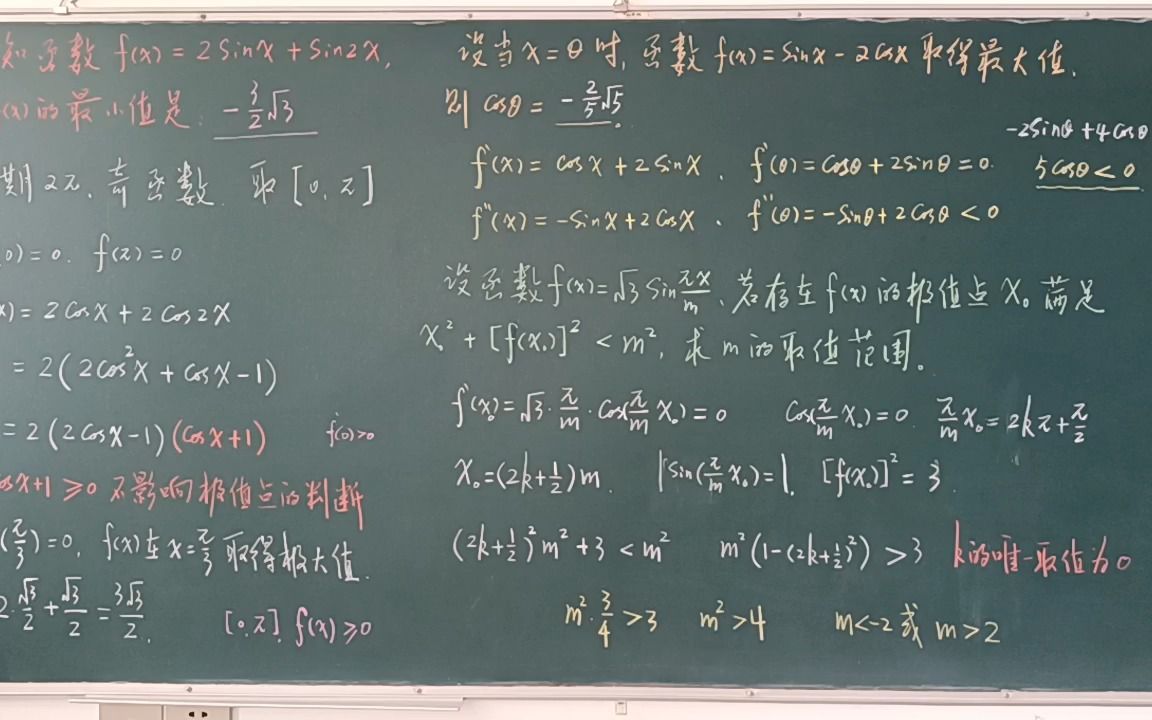 知函数 f(x) = 2 sinx + sin2x,
(x)的最小值是: -3/2√3
期2π, 奇函数. 取[0,π]
0)=0. f(π)=0
x) = 2cosx + 2cos2x
= 2(2cos²x + cosx - 1)
= 2(2cosx-1)(cosx+1) f'(0)>0
cosx+1 ≥0 不影响极值点的判断
(π/3)=0, f(x)在x=π/3取得极大值.
2·√3/2 + √3/2 = 3√3/2. [0,π] f(x)≥0
设当x=θ时, 函数 f(x)=sinx-2cosx 取得最大值.
则 cosθ = -2/5√5.
-2sinθ+4cosθ
f'(x) = cosx + 2sinx. f'(θ)=cosθ+2sinθ=0. 5cosθ<0
f''(x) = -sinx+2cosx. f''(θ)=-sinθ+2cosθ<0
设函数f(x)=√3 sin πx/m, 若存在f(x)的极值点x₀满足
x₀² + [f(x₀)]² < m², 求m的取值范围.
f'(x₀)=√3·π/m·cos(π/m x₀)=0 cos(π/m x₀)=0 π/m x₀=2kπ+π/2
x₀=(2k+1/2)m. |sin(π/m x₀)=1. [f(x₀)]²=3
(2k+1/2)²m²+3<m² m²(1-(2k+1/2)²)>3 k的唯一取值为0
m²·3/4>3 m²>4 m<-2或m>2